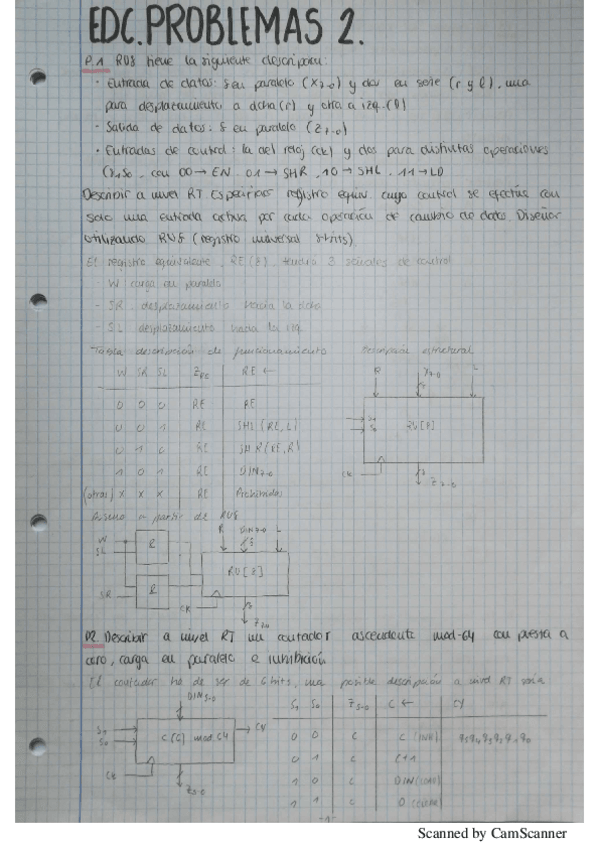 EDC. PROBLEMAS 2.
P.1 RU8 tiene la siguiente descripción:
· Entrada de datos: 8 en paralelo (X7-0) y dos en serie (r y l), una
para desplazamiento a dcha (r) y otra a izq. (l)
- Salida de datos: 8 en paralelo (Z7-0)
· Entradas de control: la del reloj (ck) y dos para distintas operaciones
S1S0, con 00→EN. 01→SHR, 10→SHL. 11→LD
Describir a nivel RT registro equiv. cuyo control se efectúa con
solo una entrada activa por cada operación de cambio de dato. Diseñar
utilizando RU8 (registro universal 8bits)
El registro equivalente, RE[8], tendrá 3 señales de control
- W carga en paralelo
- SR desplazamiento hacia la
- SL desplazamiento hacia la izq.
Tabla descripción de funcionamiento
Descripción estructural
W SR SL ZRE RE ←
0 0 0 RE RE
0 0 1 RE SHL(RE, L)
0 1 0 RE SHR(RE, R)
1 0 1 RE DIN7-0
(otras) x x x RE Prohibidas
R X7-0 L
S1
S0
RU[8]
CK
Z7-0
Diseño a partir de RU8
W
SL
R
SR
R
R DIN7-0 L
8
RU[8]
CK
Z7-0
P2. Describir a nivel RT un contador ascendente mod-64 con puesta a
cero, carga en paralelo e inhibición
El contador ha de ser de 6 bits, una posible descripción a nivel RT sería
DIN5-0
S1
S0
C[6] mod. 64
CY
CK
Z5-0
S1 S0 Z5-0 C ← CY
0 0 C C (INH) q5q4q3q2q1q0
0 1 C C+1
1 0 C DIN (LOAD)
1 1 C 0 (CLEAR)
-1-
Scanned by CamScanner